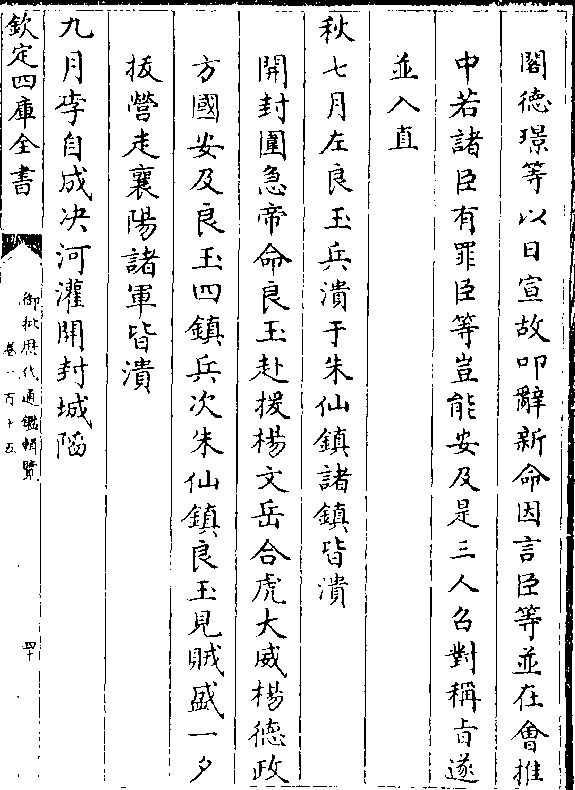 閣德璟等以日宣故叩辭新命因言臣等並在會推
中若諸臣有罪臣等豈能安及是三人召對稱㫖遂
並入直
秋七月左良玉兵潰于朱仙鎮諸鎮皆潰
開封圍急帝命良玉赴援楊文岳合虎大威楊德政
方國安及良玉四鎮兵次朱仙鎮良玉見賊盛一夕
拔營走襄陽諸軍皆潰
九月李自成决河灌開封城陷
欽定四庫全書
御批歷代通鑑輯覽
卷一百十五
四十